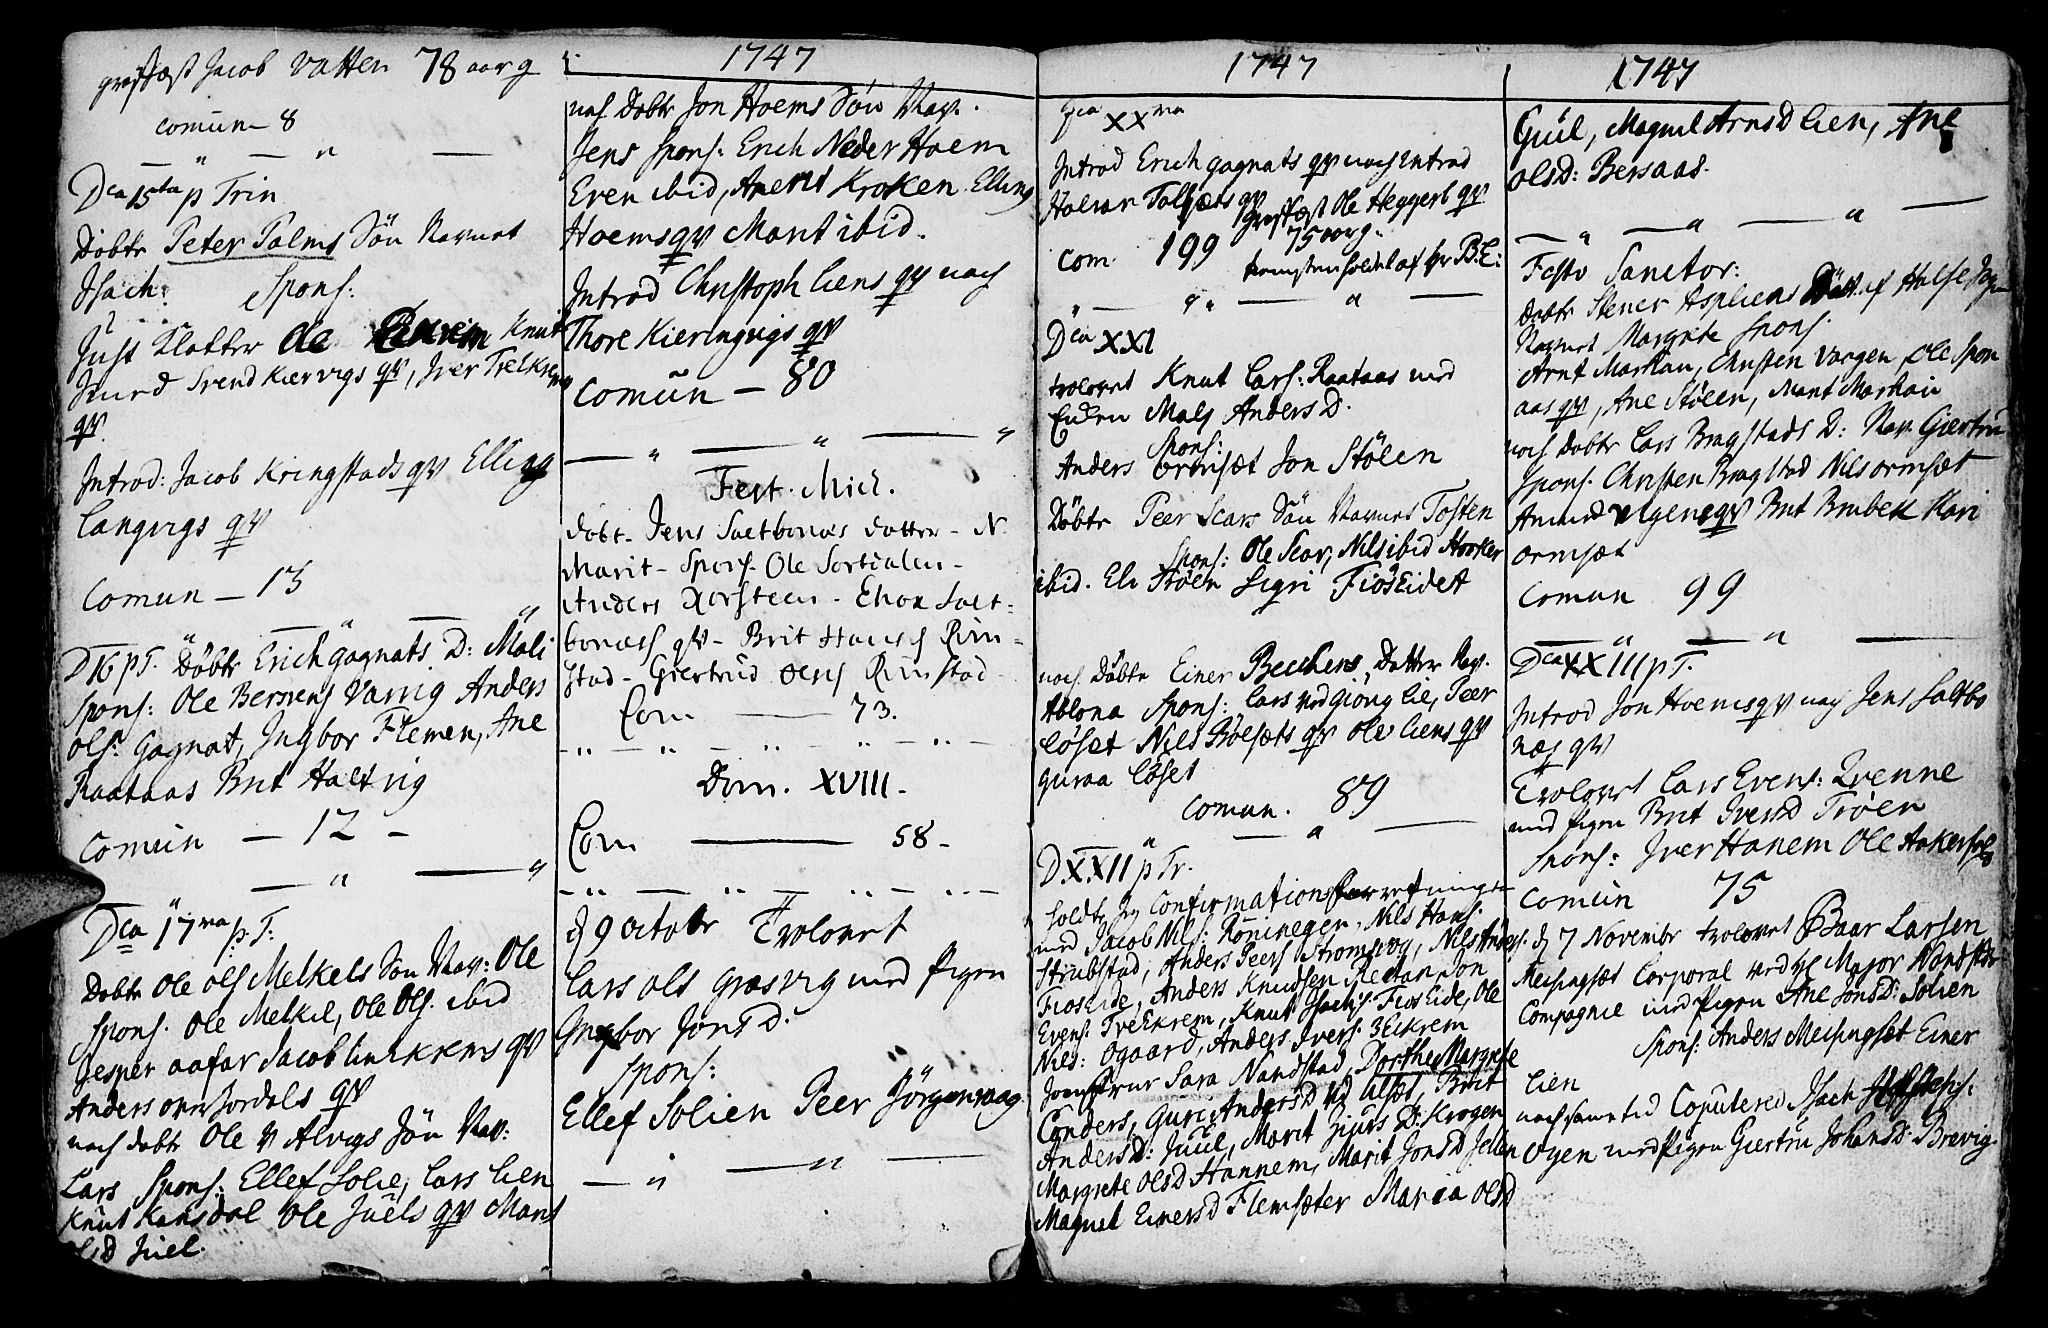 graffæst Jacob Vatten 78 aar g
comun - 8
Dca 15ta p Trin
Døbte Peter Palms Søn Navnet
Isach. Spons:
Just Klotter Ole Knut
Svend Kiervigs qv, Iver Trelkrem
qv.
Introd: Jacob Kringstads qv Elling
Langvigs qv
Comun - 13
D 16 p T. Døbte Erich Gagnats D: Mali
Spons: Ole Bersvens Varvig Anders
Ols: Gagnat, Ingbor Flemen, Ane
Raataas Brit Haltvig
Comun - 12 -
Dca 17ma p. T:
Døbte Ole Ols Melkels Søn Nav: Ole
Spons. Ole Melkel, Ole Ols. ibid
Jesper aafar Jacob qv
Anders qv
noch døbt Ole Alvigs Søn Nav:
Lars Spons: Ellef Solie, Lars Lien
Knut Kansdal Ole Juels qv Marit
Olsd Juel.
1747
noch Døbte Jon Hoems Søn Nav.
Jens Spons: Erich Neder Hoem
Even ibid, Anders Kroken Elling
Hoems qv Marit ibid.
Introd Christoph Liens qv noch
Thore Kieringvigs qv
Comun - 80
Fest. Mich.
døbt- Jens Saetbonæs datter - N.
Marit - Spons. Ole Sortdalen -
Anders Korsteen - Saet-
bonæs qv - Brit Hansd Rin-
stad - Giertrud Olsd Rinstad -
Com - 73.
Dom. XVIII.
Com - 58 -
d 9 octobr Trolovet
Lars Ols Græsvig med pigen
Ingbor JonsD.
Spons:
Ellef Solien Peer Jörgenvaag
1747
Dca XXma
Introd Erich Gagnats qv noch Introd
Halvar Talsæts qv
Grafæst Ole Heggerl qv
75 aar g.
Com. 199 tienesten holdet af hr B.E:
Dca XXI
trolovet Knut Lars: Raataas med
Enken Mali AndersD.
Spons:
Anders Ormsæt Jon Stölen
Døbte Peer Scars Søn Navnet Tosten
Spons: Ole Scar, Nils ibid
ibid. Eli Støen Sigri Fiöseidet
noch Døbte Einer Datter Nav.
Ablona Spons: Lars Lie, Peer
Löset Nils Röesets qv Ole Liens qv
Guraa Löset
Comun. 89
D. XXII p Tr.
holdt jeg Confirmations forretningen
med Jacob Nils: Nils Hans:
Strubstad, Anders Peers Stromsvog, Nils Anders.
Fioseide, Anders Knudsen Jon
Evens: Treekrem, Knut Isachs: Fioseide, Ole
Nils: Ogaard, Anders Ivers: Eekrem
Jomfrur Sara Nandstad, Dorthe Margrete
Conders, Guri AndersD Ulset, Brit
AndersD: Juul, Marit D: Krogen
Margrete OlsD Hannem, Marit JonsD
Magnel EinersD Flemsæter Maria OlsD
1747
Giul, Magnel ArnsD Lien, Ane
OlsD: Bersaas.
Festo Sanctor:
Døbte Stener Aspliens Datt. af Halse Sogn
Navnet Margrete Spons.
Arnt Markau, Christen Vargen, Ole Spon
aas qv, Ane Støten, Marit Markau
noch døbte Lars Bragstads D: Nav Giertru
Spons. Christen Bragstad Nils Ormsæt
qv Brit Brubek Kari
Ormsæt
Comun 99
Dca XXIII p T.
Introd Jon Hoems qv noch Jens Saltbo
næs qv
Trolovet Lars Evens: Qvenne
med pigen Brit IversD Tröen
Spons: Iver Hanem Ole
Comun 75
d 7 Novembr trolovet Baar Larsen
Meisingset Corporal ved hr Major Nandstads
Compagnie med Pigen Ane JonsD: Solien
Spons: Anders Meisingset Einer
Lien
noch samme tid Coputered Isach
Oyen med pigen Giertru JohansD: Brevig.